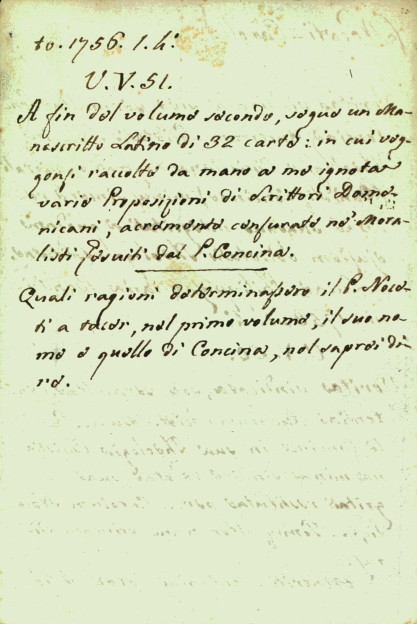 to. 1756. 1. 4.
U. V. 51.
A fin del volume secondo, segue un Ma-
nescritto Latino di 32 carte: in cui veg-
gonsi raccolte da mano a me ignota
varie Proposizioni di Scrittori Dome-
nicani, acremente censurate ne' Mora-
listi Gesuiti dal P. Concina.
Quali ragioni determinassero il P. Noce-
ti a tacer, nel primo volume, il suo no-
me e quello di Concina, nol saprei di-
re.